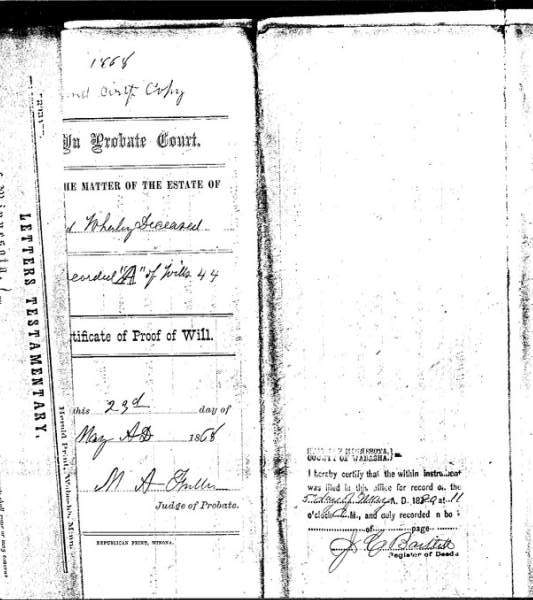 1868
and Certf. Copy
In Probate Court.
HE MATTER OF THE ESTATE OF
d Wherley Deceased
ecorded "A" of Wills 44
tificate of Proof of Will.
this 23d day of
May A.D 1868
M A Fuller
Judge of Probate.
REPUBLICAN PRINT, WINONA.
LETTERS TESTAMENTARY.
Herald Print, Wabasha, Minn
Minnesota,
MINNESOTA,
COUNTY OF WABASHA.
I hereby certify that the within instrument
was filed in this office for record on the
5 day of A. D. 18 at 11
o'clock A.M., and duly recorded in bo
of page
J. C. Bartlett
Register of Deeds